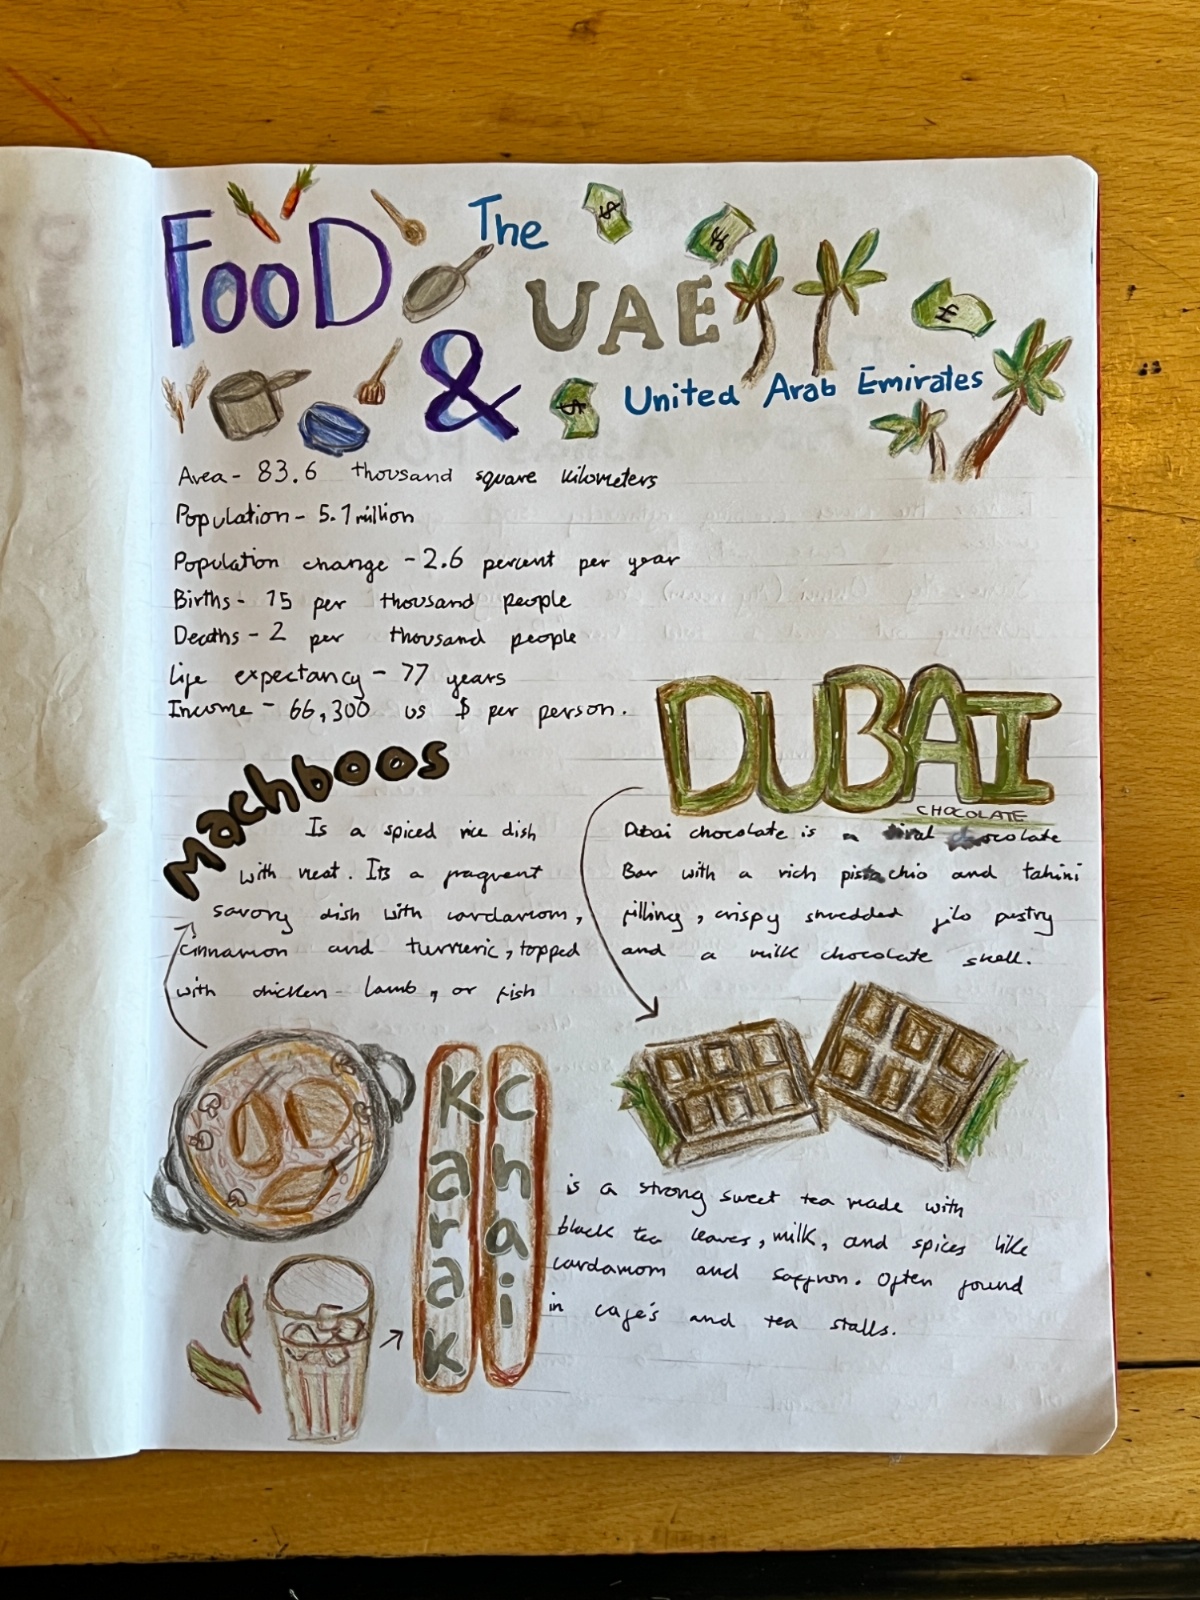 FooD
The
UAE
&
United Arab Emirates
Area - 83.6 thousand square kilometers
Population - 5.1 million
Population change - 2.6 percent per year
Births - 15 per thousand people
Deaths - 2 per thousand people
Life expectancy - 77 years
Income - 66,300 us $ per person.
Machboos
Is a spiced rice dish
with meat. Its a fragrent
savory dish with cardamom,
cinnamon and turmeric, topped
with chicken lamb, or fish
DUBAI
CHOCOLATE
Dubai chocolate is a viral chocolate
Bar with a rich pistachio and tahini
filling, crispy shredded filo pastry
and a milk chocolate shell.
Karak
Chai
is a strong sweet tea made with
black tea leaves, milk, and spices like
cardamom and saffron. Often found
in cafe's and tea stalls.